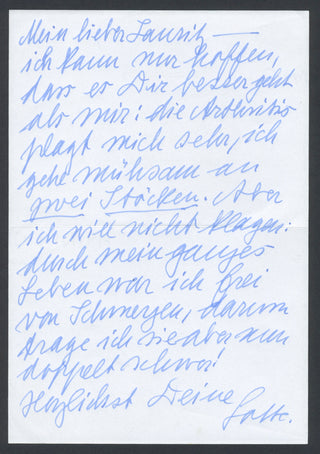 Mein lieber Laurit —
ich kann nur hoffen,
dass es Dir besser geht
als mir: die Arthritis
plagt mich sehr, ich
gehe mühsam an
zwei Stöcken. Aber
ich will nicht klagen:
durch mein ganzes
Leben war ich frei
von Schmerzen, darum
trage ich sie aber nun
doppelt schwer!
Herzlichst Deine
Lotte.